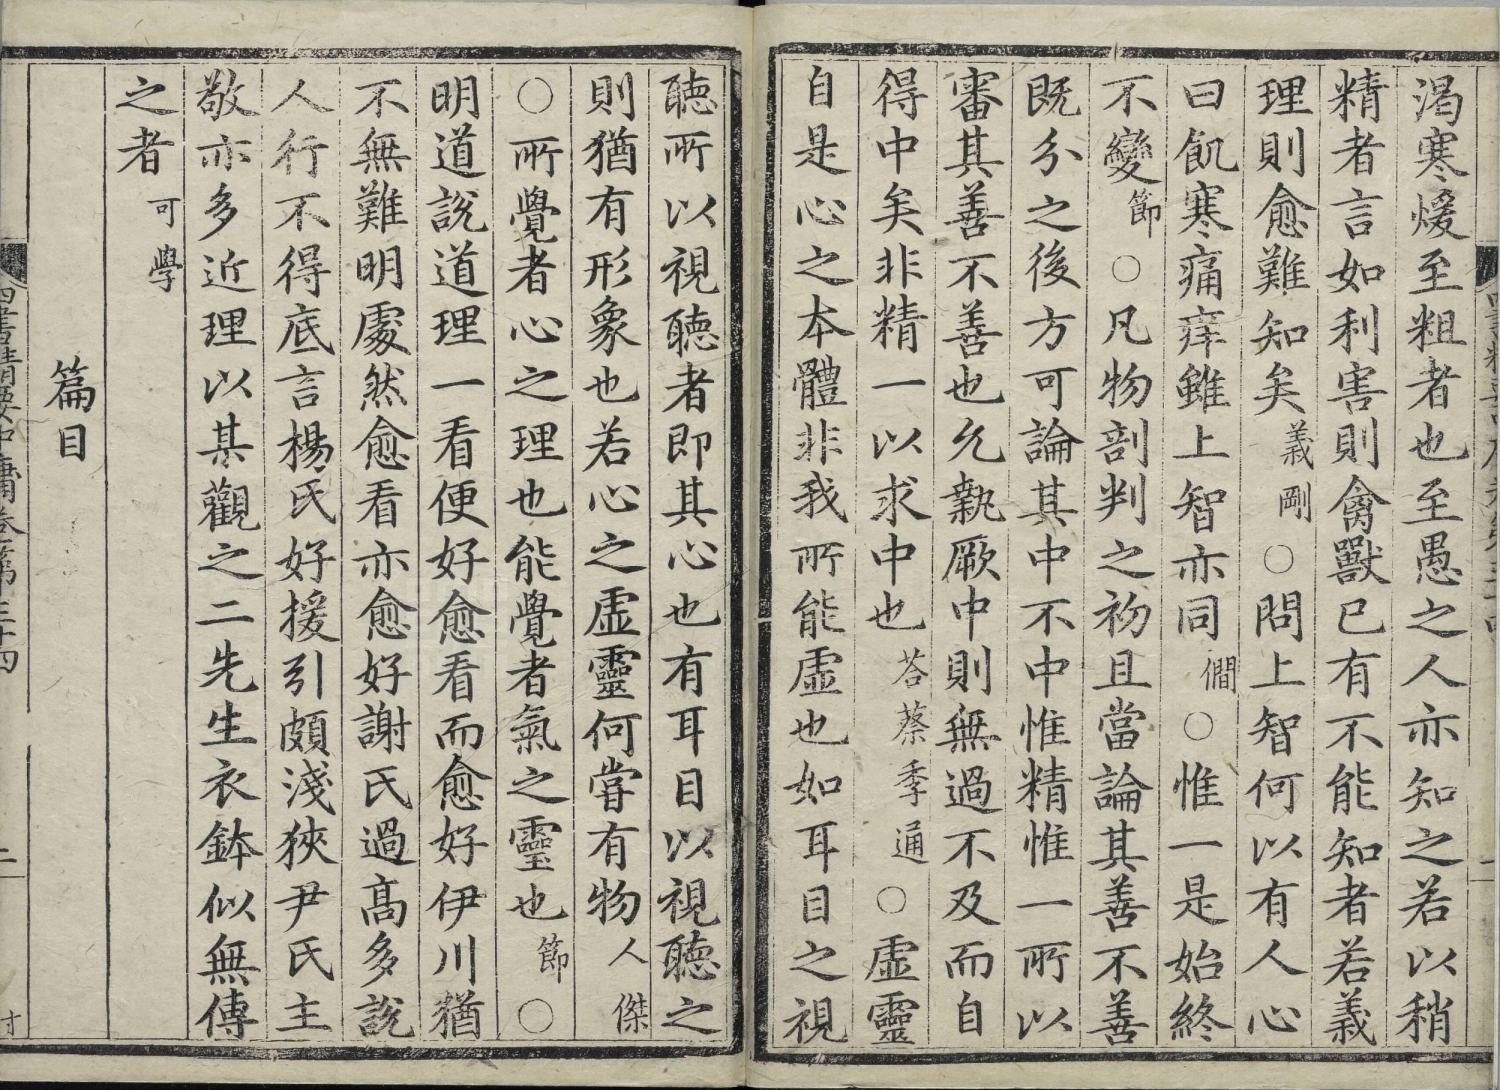 渴寒煖至粗者也至愚之人亦知之若以稍
精者言如利害則禽獸已有不能知者若義
理則愈難知矣義剛○問上智何以有人心
曰飢寒痛痒雖上智亦同僩○惟一是始終
不變節○凡物剖判之初且當論其善不善
既分之後方可論其中不中惟精惟一所以
審其善不善也允執厥中則無過不及而自
得中矣非精一以求中也荅蔡季通○虛靈
自是心之本體非我所能虛也如耳目之視
聽所以視聽者即其心也有耳目以視聽之
則猶有形象也若心之虛靈何嘗有物人傑
○所覺者心之理也能覺者氣之靈也節○
明道說道理一看便好愈看而愈好伊川猶
不無難明處然愈看亦愈好謝氏過高多說
人行不得底言楊氏好援引頗淺狹尹氏主
敬亦多近理以其觀之二先生衣鉢似無傳
之者可學
篇目
四書精要中庸卷第三十四
二